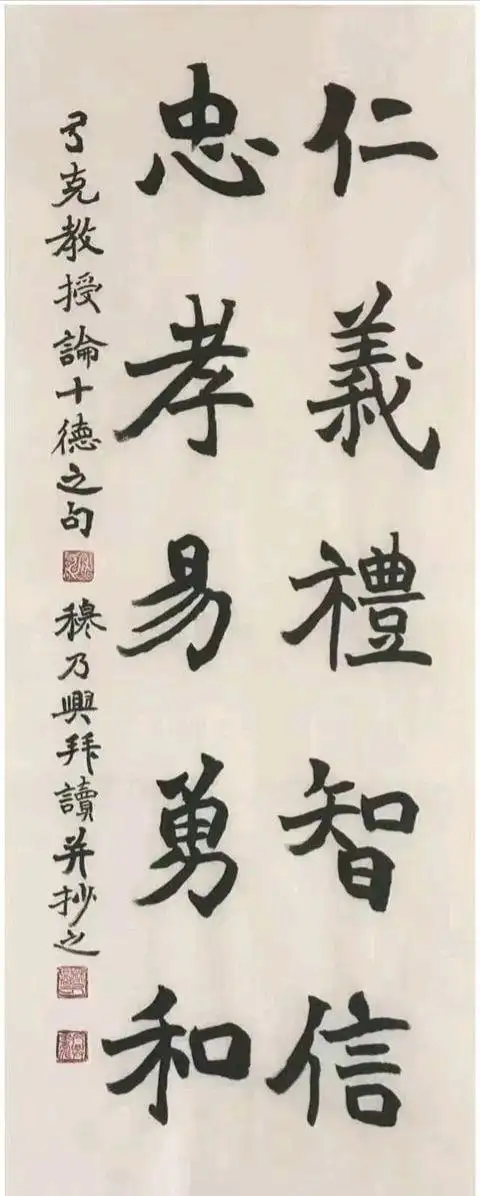 仁義禮智信
忠孝易勇和
弓克教授論十德之句
穆乃興拜讀并抄之